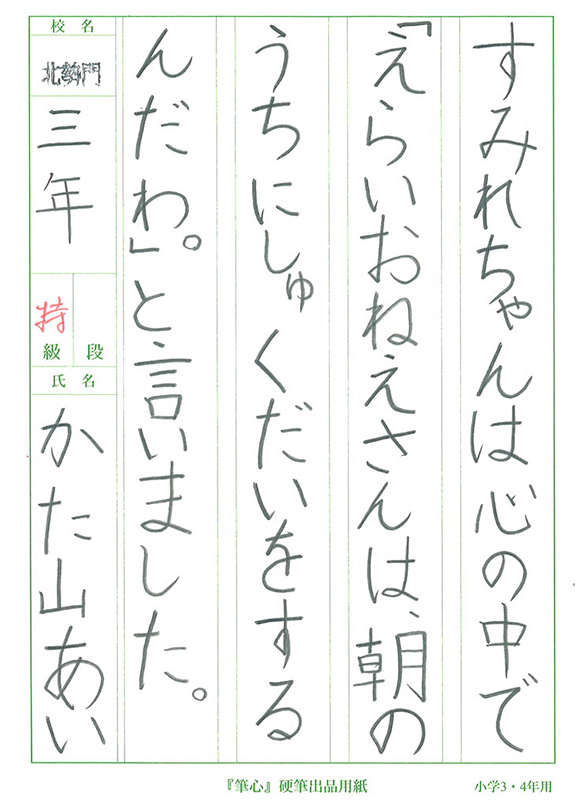 すみれちゃんは心の中で
「えらいおねえさんは、朝の
うちにしゅくだいをする
んだわ。」と言いました。
校名
北勢門
三年
特
級 段
氏名
かた山あい
『筆心』硬筆出品用紙
小学3・4年用